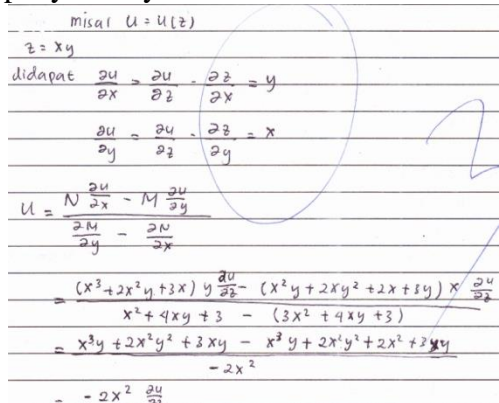 misal u = u(z)
z = xy
didapat ∂u/∂x = ∂u/∂z · ∂z/∂x = y
∂u/∂y = ∂u/∂z · ∂z/∂y = x
u = (N ∂u/∂x - M ∂u/∂y) / (∂M/∂y - ∂N/∂x)
= ((x³+2x²y+3x) y ∂u/∂z - (x²y+2xy²+2x+3y) x ∂u/∂z) / (x²+4xy+3 - (3x²+4xy+3))
= (x³y+2x²y²+3xy - x³y+2x²y²+2x²+3xy) / (-2x²)
= -2x² ∂u/∂z